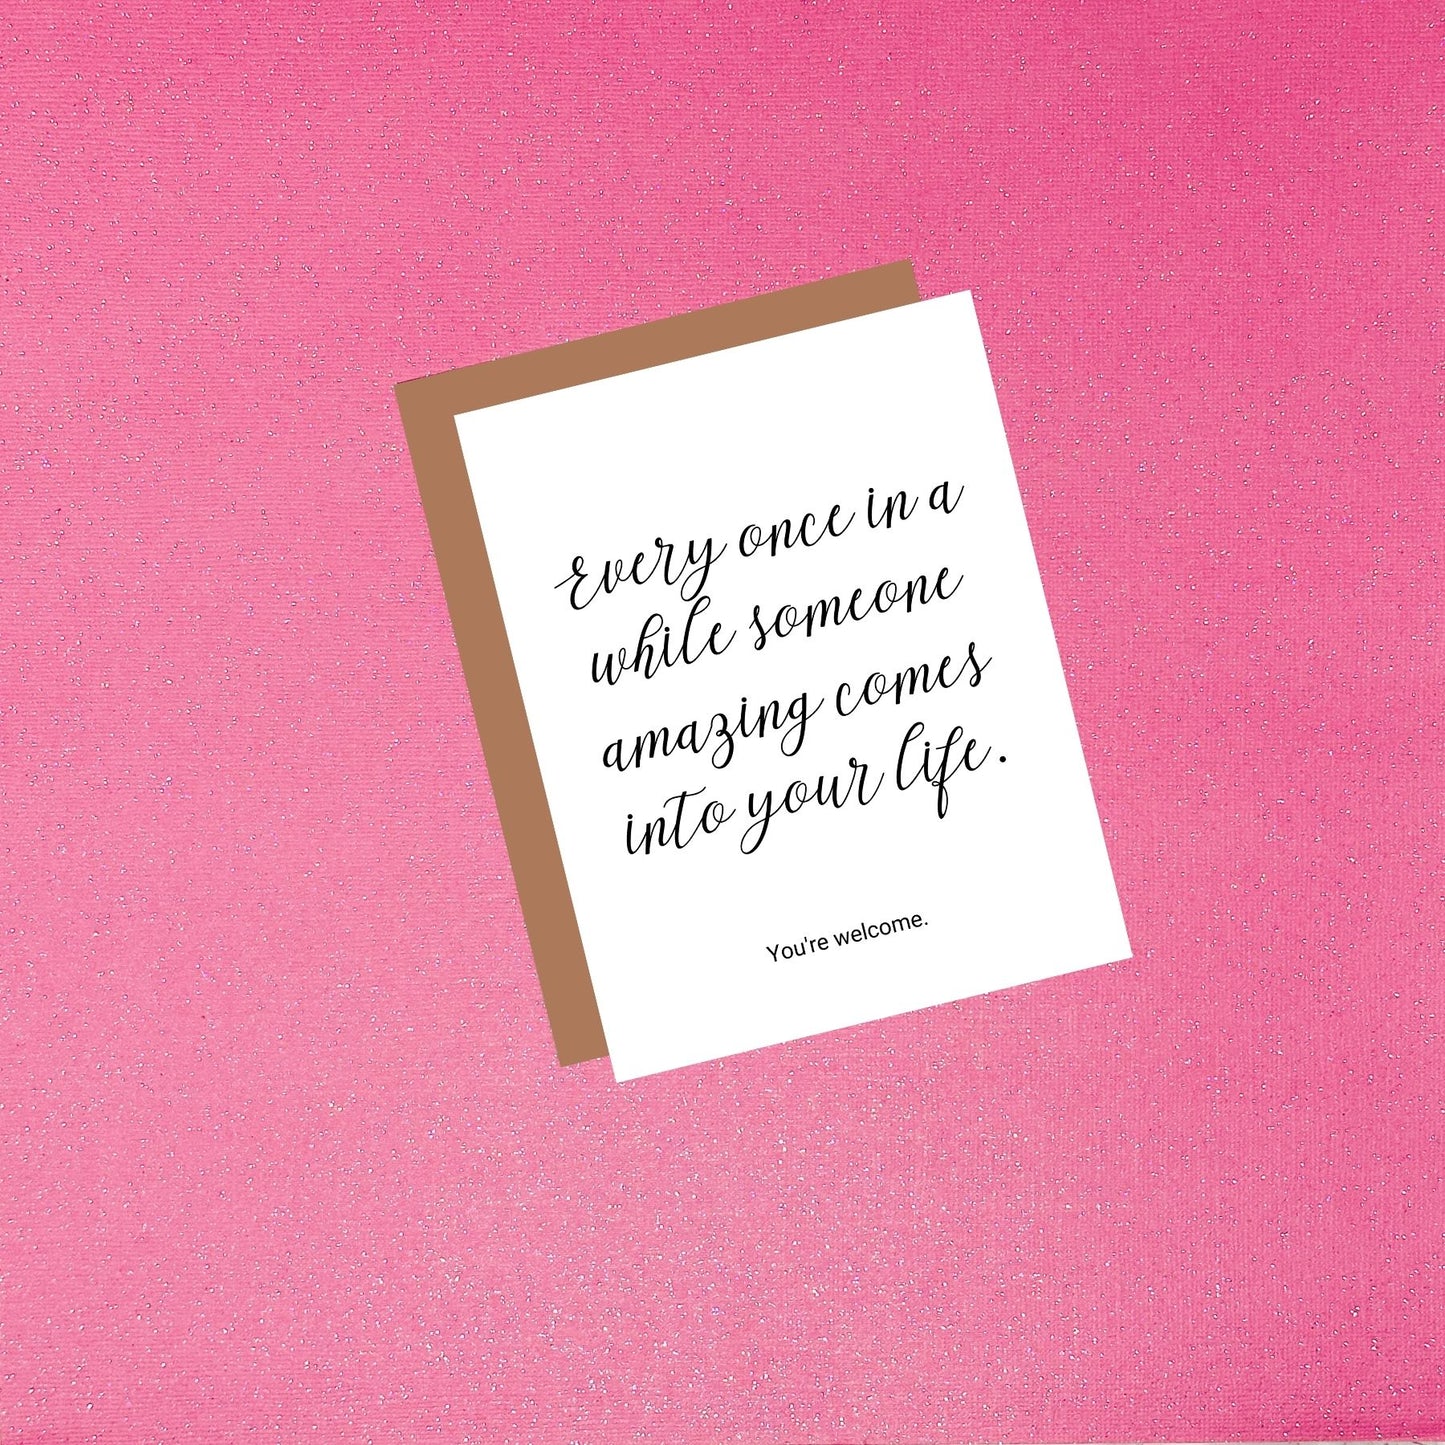 Every once in a
while someone
amazing comes
into your life.
You're welcome.